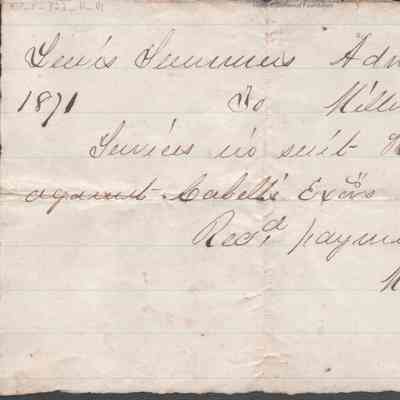 Lewis Summers Adm
1871 To Mille
Services in suit
against Cabell's Exors
Recd. payme